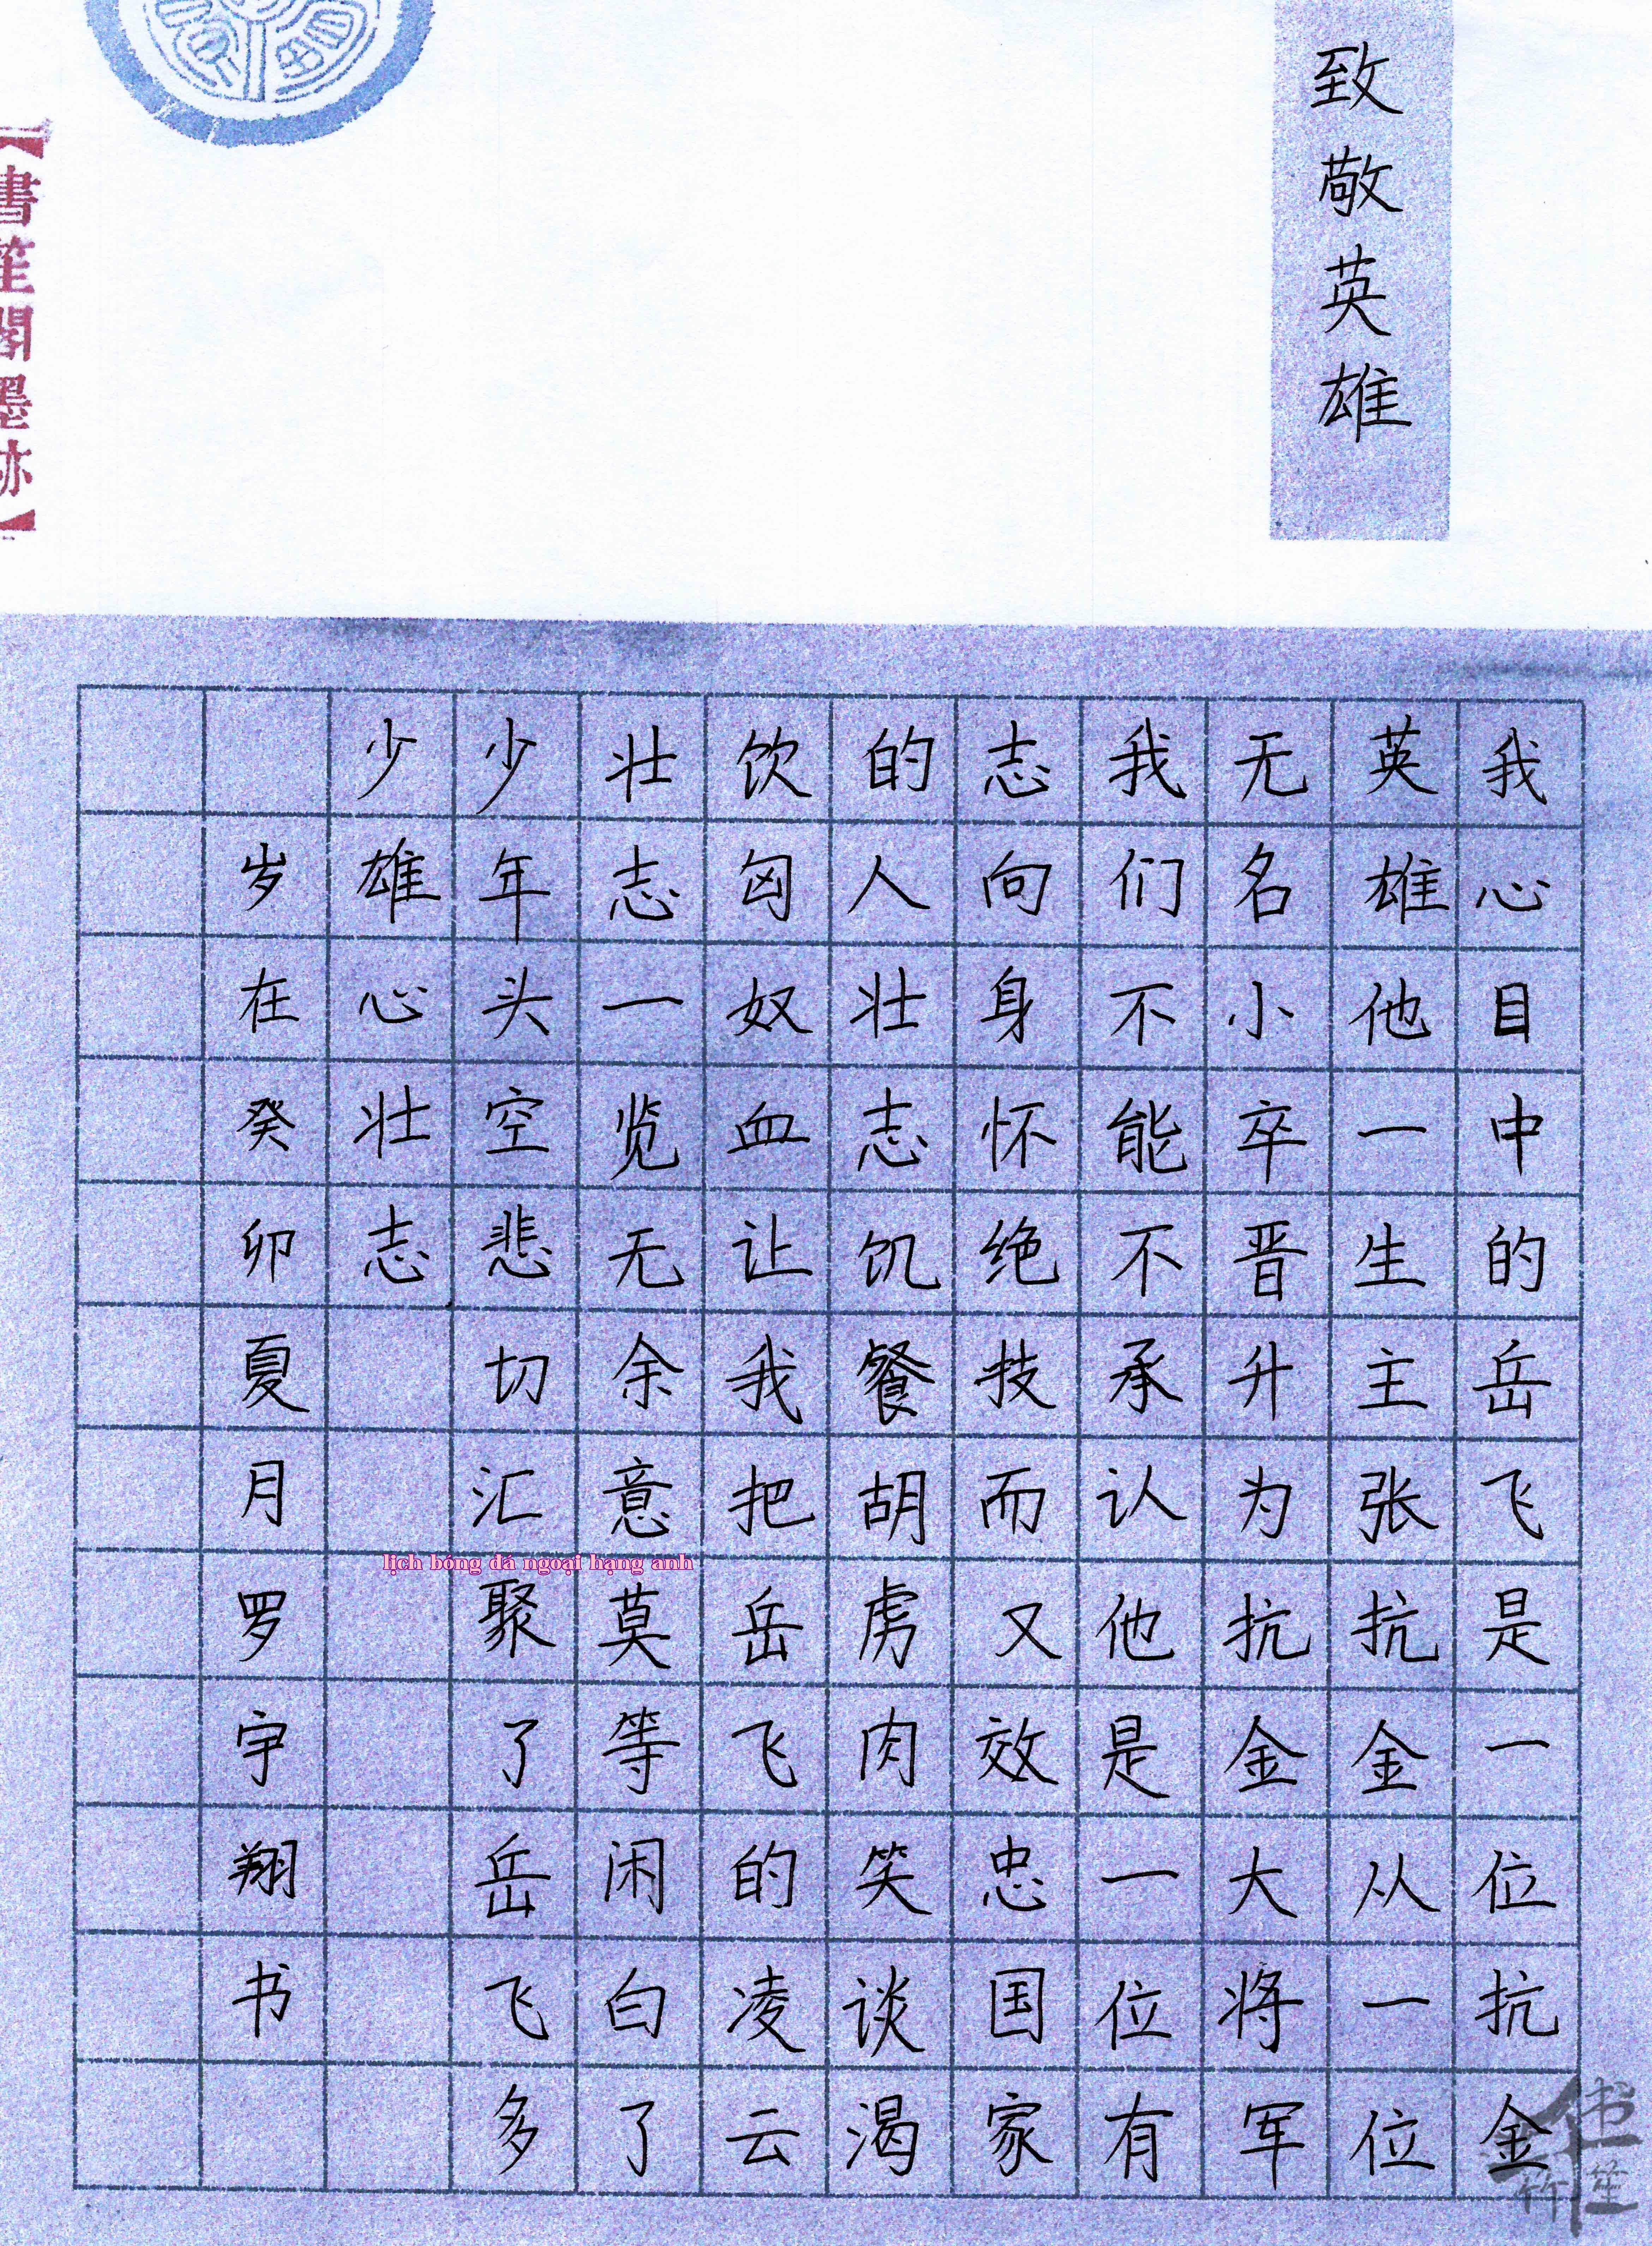 致敬英雄
我心目中的岳飞是一位抗金
英雄他一生主张抗金从一位
无名小卒晋升为抗金大将军
我们不能不承认他是一位有
志向身怀绝技而又效忠国家
的人壮志饥餐胡虏肉笑谈渴
饮匈奴血让我把岳飞的凌云
壮志一览无余意莫等闲白了
少年头空悲切汇聚了岳飞多
少雄心壮志
岁在癸卯夏月罗宇翔书
【書笙閣墨跡】
lịch bóng đá ngoại hạng anh
书笙